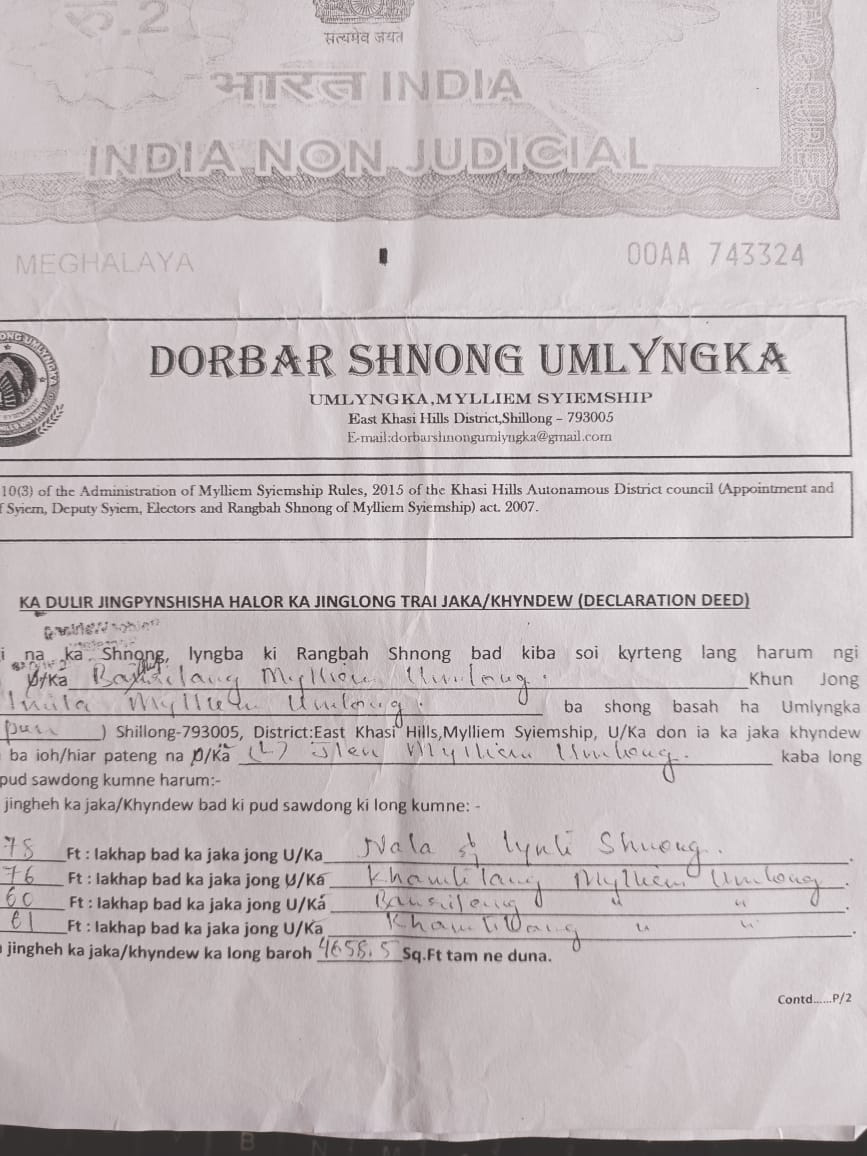 रु.2
सत्यमेव जयते
भारत INDIA
INDIA NON JUDICIAL
MEGHALAYA
00AA 743324
DORBAR SHNONG UMLYNGKA
UMLYNGKA,MYLLIEM SYIEMSHIP
East Khasi Hills District,Shillong - 793005
E-mail:dorbarshnongumlyngka@gmail.com
10(3) of the Administration of Mylliem Syiemship Rules, 2015 of the Khasi Hills Autonamous District council (Appointment and
f Syiem, Deputy Syiem, Electors and Rangbah Shnong of Mylliem Syiemship) act. 2007.
KA DULIR JINGPYNSHISHA HALOR KA JINGLONG TRAI JAKA/KHYNDEW (DECLARATION DEED)
i na ka Shnong, lyngba ki Rangbah Shnong bad kiba soi kyrteng lang harum ngi
U/Ka Mylliem Umlong. Khun Jong
Mylliem Umlong. ba shong basah ha Umlyngka
) Shillong-793005, District:East Khasi Hills,Mylliem Syiemship, U/Ka don ia ka jaka khyndew
ba ioh/hiar pateng na U/Ka (L) Mylliem Umlong. kaba long
pud sawdong kumne harum:-
jingheh ka jaka/Khyndew bad ki pud sawdong ki long kumne: -
78 Ft : lakhap bad ka jaka jong U/Ka Nala Shnong.
76 Ft : lakhap bad ka jaka jong U/Ka Mylliem Umlong.
60 Ft : lakhap bad ka jaka jong U/Ka " " .
61 Ft : lakhap bad ka jaka jong U/Ka " " .
jingheh ka jaka/khyndew ka long baroh 4658.5 Sq.Ft tam ne duna.
Contd......P/2